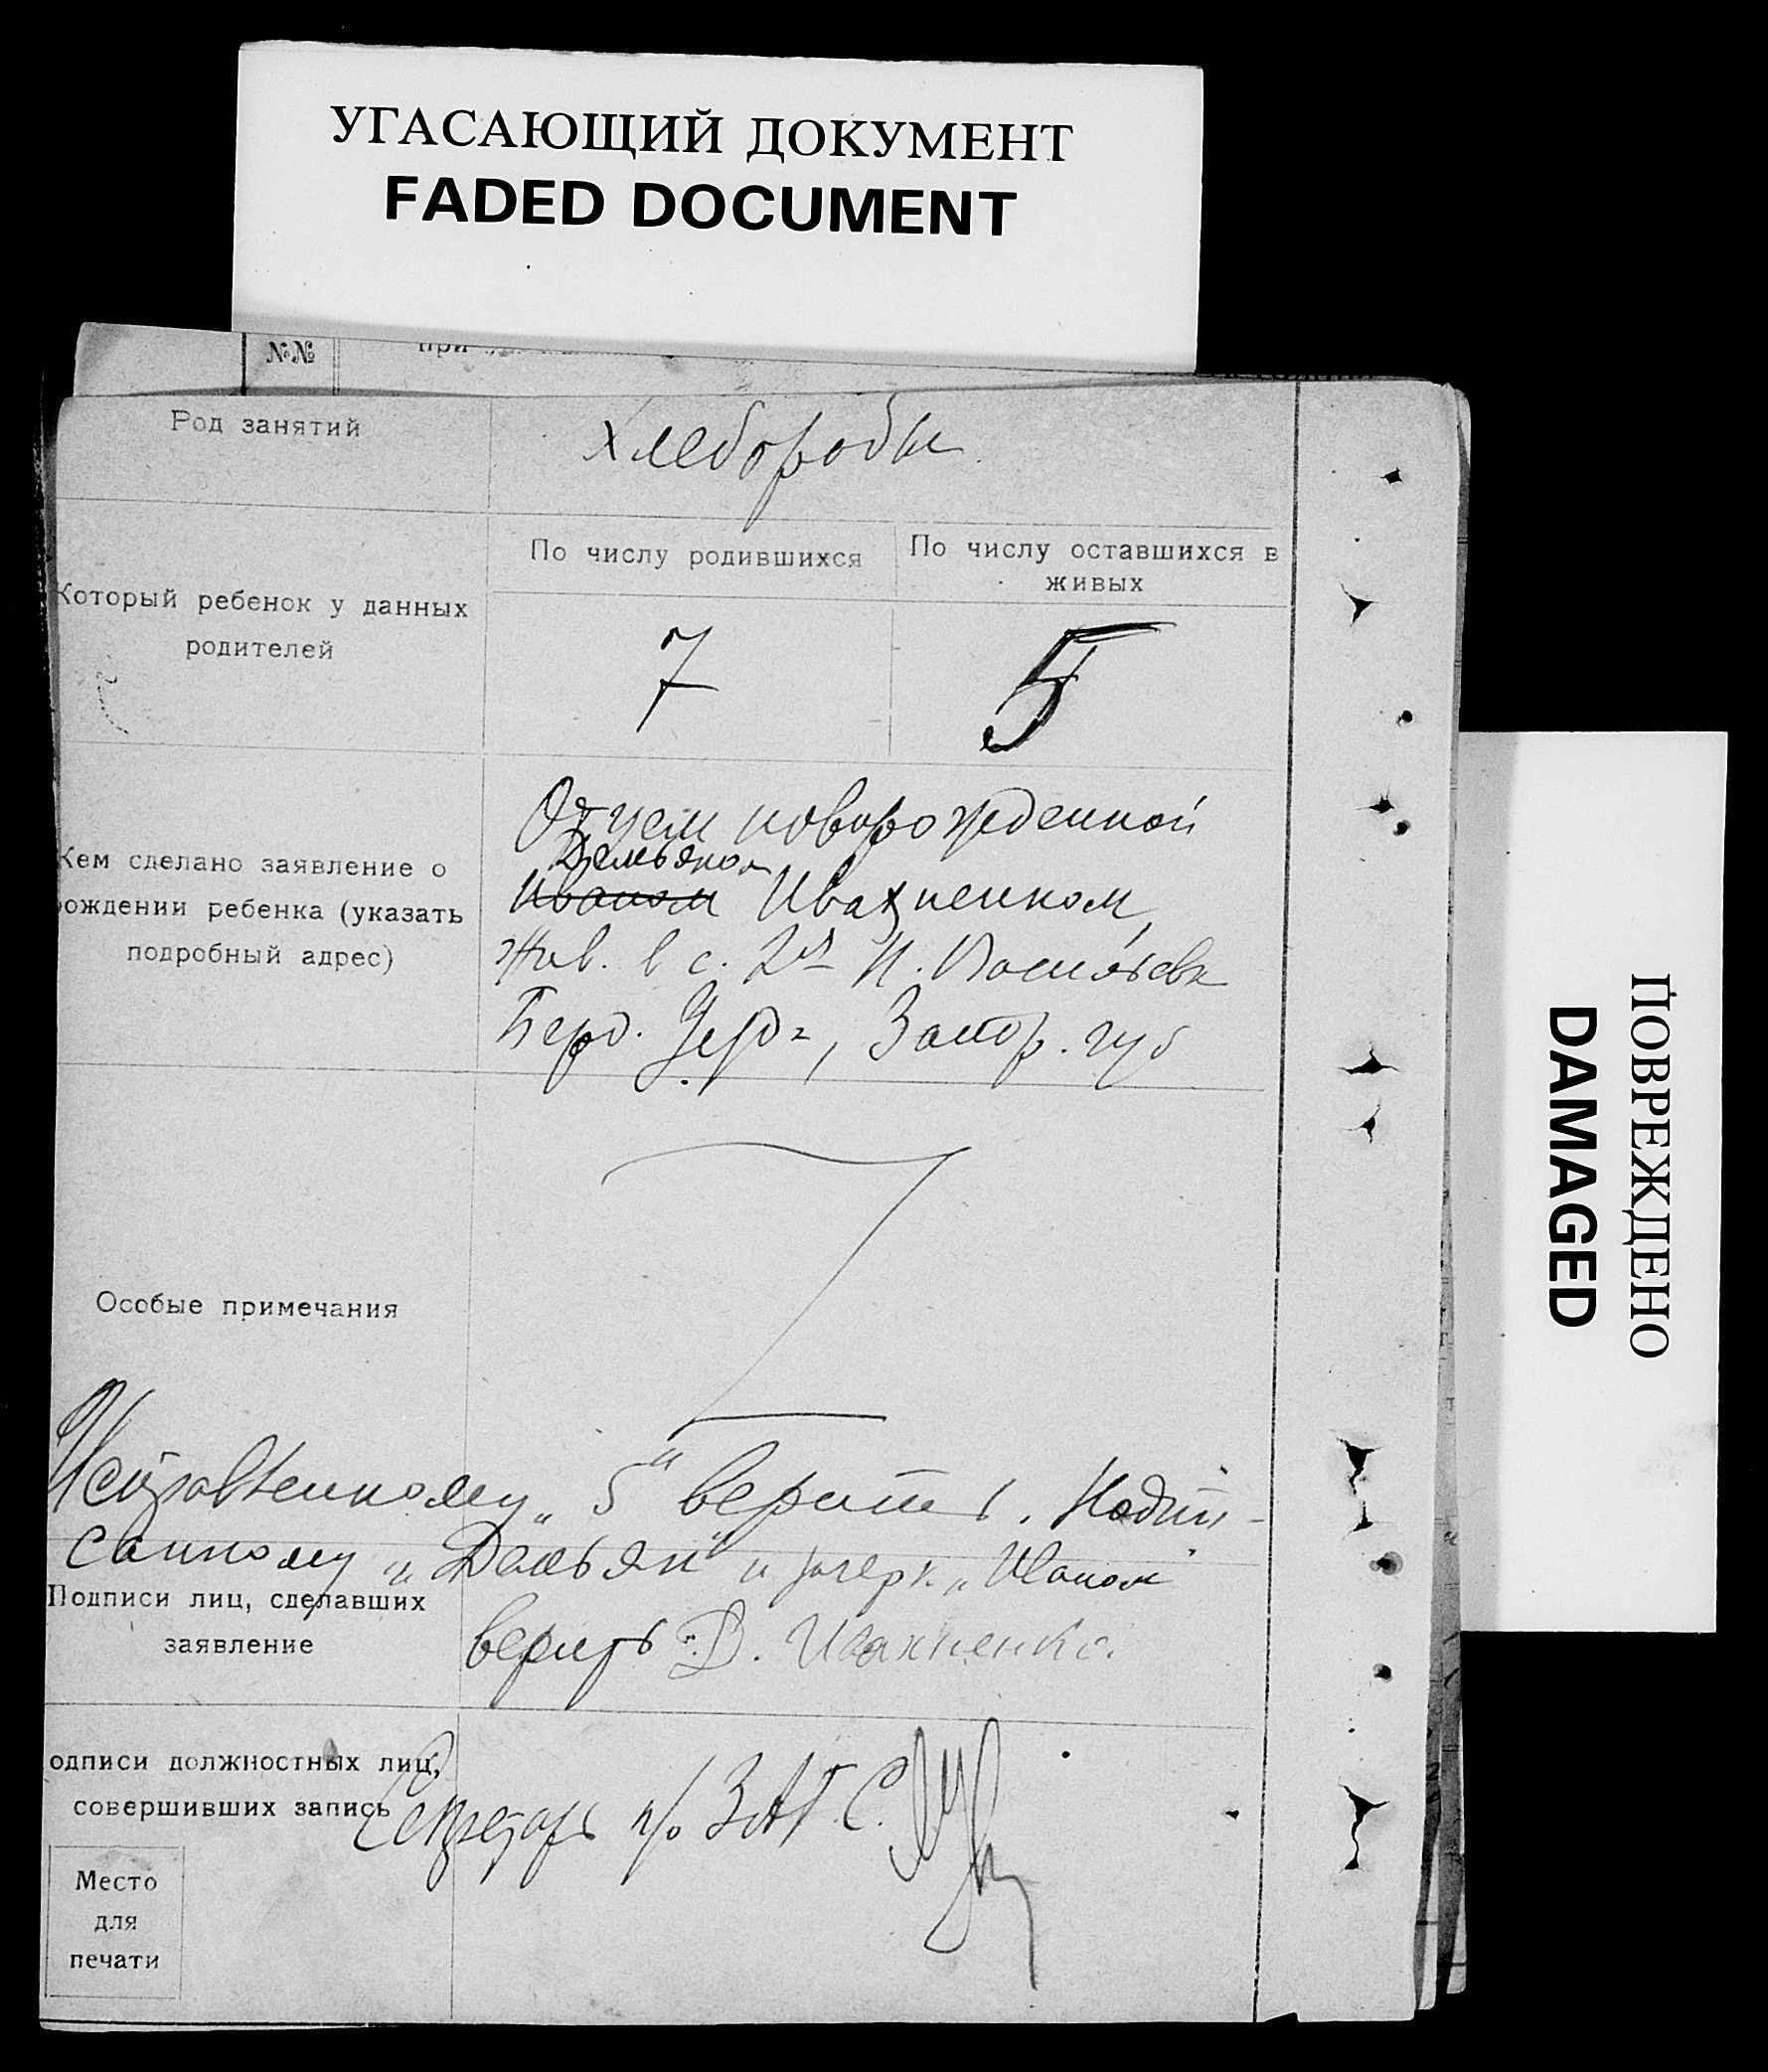 УГАСАЮЩИЙ ДОКУМЕНТ
FADED DOCUMENT
№№ при
Род занятий
Хлеборобы
Который ребенок у данных
родителей
По числу родившихся
По числу оставшихся в
живых
7
5
Кем сделано заявление о
рождении ребенка (указать
подробный адрес)
Отцем новорожденной
Демьяном
Иваном Ивахненком,
Жив. в с. 2й Н. Васильевк
Берд. Уезд, Запор. губ
Особые примечания
Исправленному „5“ верить. Надпи-
санному „Демьян“ и зачерк. „Иваном“
Подписи лиц, сделавших
заявление
верить Д. Ивахненко.
одписи должностных лиц,
совершивших запись
Секретарь п/о ЗАГС.
Место
для
печати
ПОВРЕЖДЕНО
DAMAGED